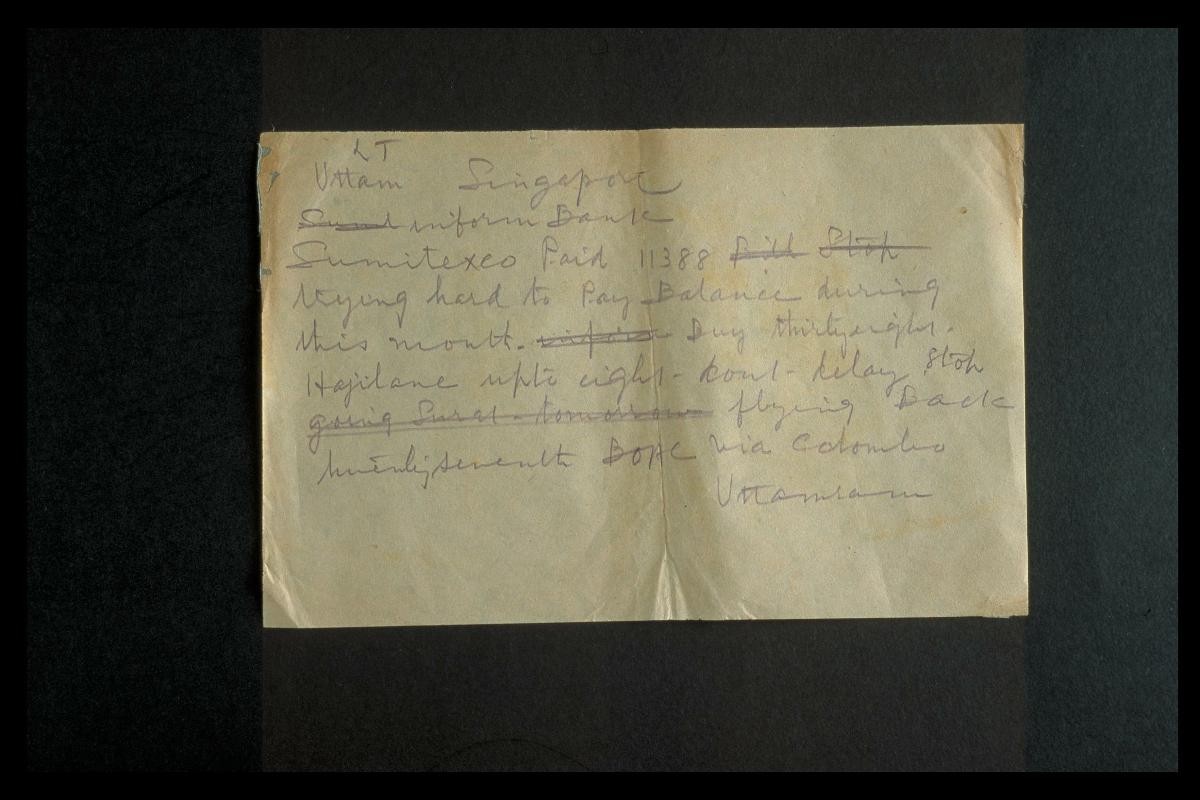 LT
Uttam Singapore
Send inform Bank
Sumitexco Paid 11388 Bill Stop
trying hard to Pay Balance during
this month. inform Buy thirtyeight.
Hajilane upto eight - dont - delay Stop
going Surat - tomorrow flying Back
twentyseventh BOAC via Colombo
Uttamram